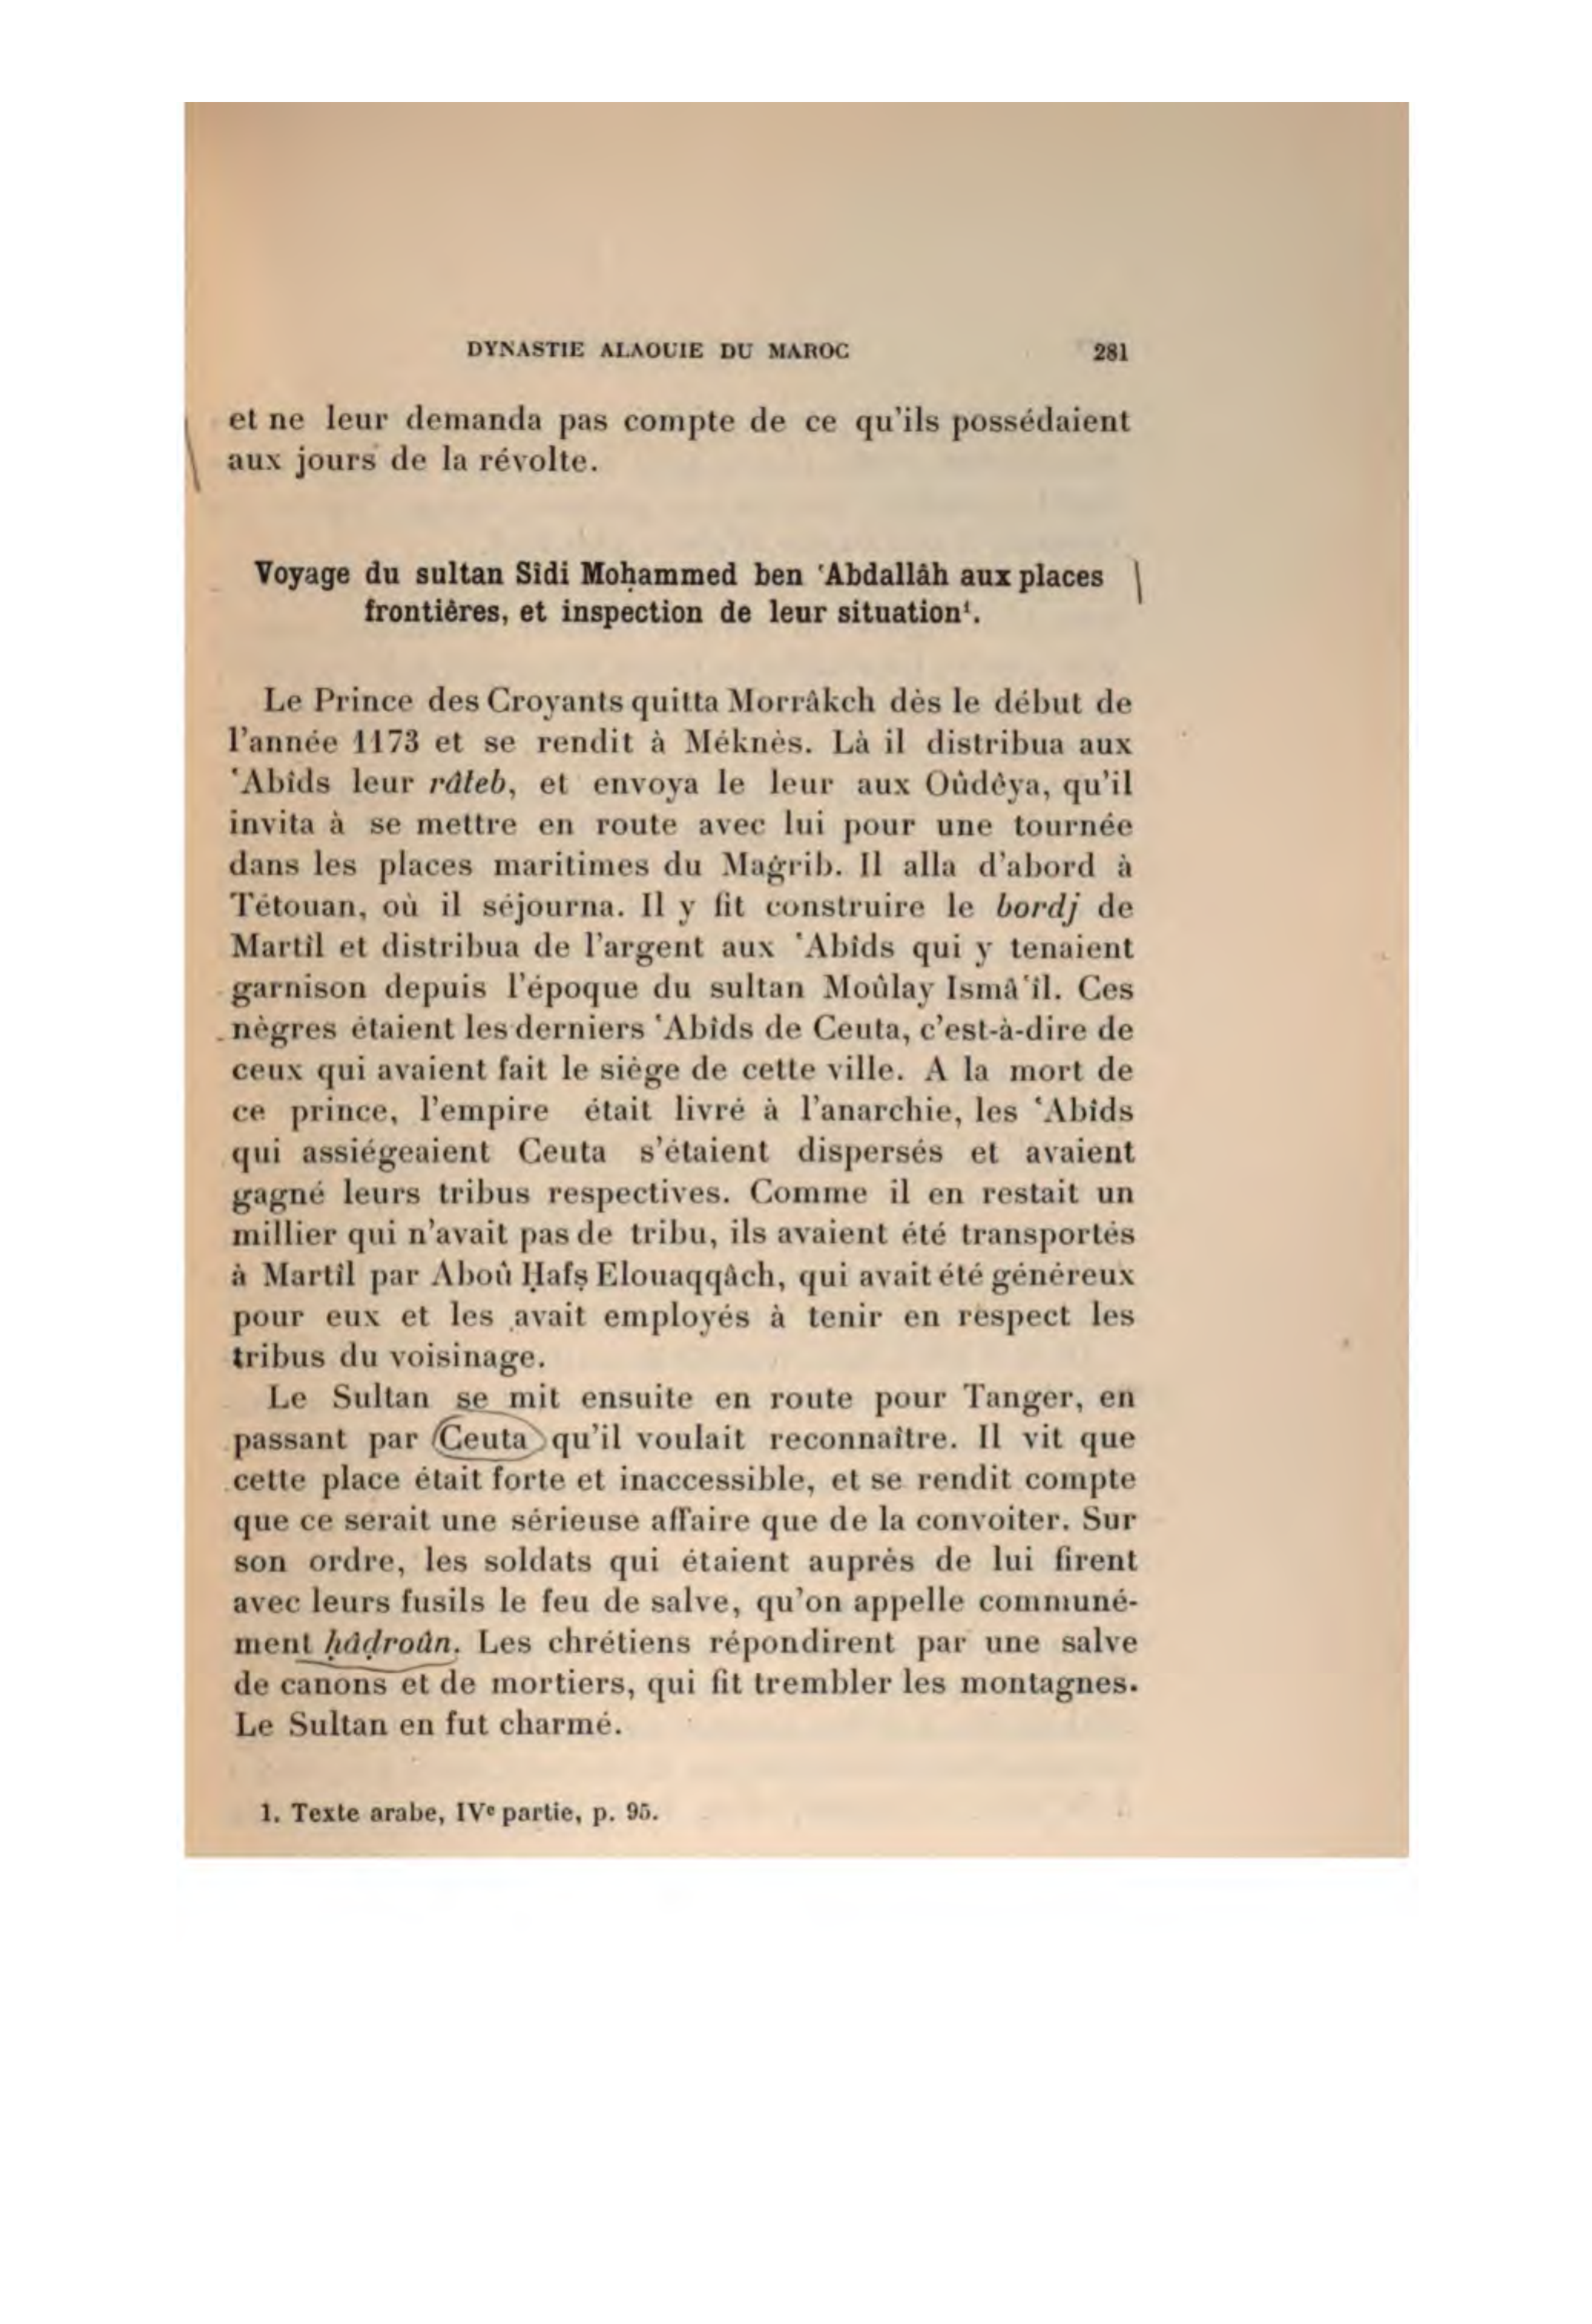 DYNASTIE ALAOUIE DU MAROC 281
et ne leur demanda pas compte de ce qu'ils possédaient
aux jours de la révolte.
Voyage du sultan Sîdi Moḥammed ben ʿAbdallâh aux places
frontières, et inspection de leur situation¹.
Le Prince des Croyants quitta Morrâkch dès le début de
l'année 1173 et se rendit à Méknès. Là il distribua aux
ʿAbîds leur râteb, et envoya le leur aux Oûdêya, qu'il
invita à se mettre en route avec lui pour une tournée
dans les places maritimes du Maġrib. Il alla d'abord à
Tétouan, où il séjourna. Il y fit construire le bordj de
Martîl et distribua de l'argent aux ʿAbîds qui y tenaient
garnison depuis l'époque du sultan Moûlay Ismâʿîl. Ces
nègres étaient les derniers ʿAbîds de Ceuta, c'est-à-dire de
ceux qui avaient fait le siège de cette ville. A la mort de
ce prince, l'empire était livré à l'anarchie, les ʿAbîds
qui assiégeaient Ceuta s'étaient dispersés et avaient
gagné leurs tribus respectives. Comme il en restait un
millier qui n'avait pas de tribu, ils avaient été transportés
à Martîl par Aboû Ḥafṣ Elouaqqâch, qui avait été généreux
pour eux et les avait employés à tenir en respect les
tribus du voisinage.
Le Sultan se mit ensuite en route pour Tanger, en
passant par Ceuta qu'il voulait reconnaître. Il vit que
cette place était forte et inaccessible, et se rendit compte
que ce serait une sérieuse affaire que de la convoiter. Sur
son ordre, les soldats qui étaient auprès de lui firent
avec leurs fusils le feu de salve, qu'on appelle communé-
ment ḥâḍroûn. Les chrétiens répondirent par une salve
de canons et de mortiers, qui fit trembler les montagnes.
Le Sultan en fut charmé.
1. Texte arabe, IVe partie, p. 95.